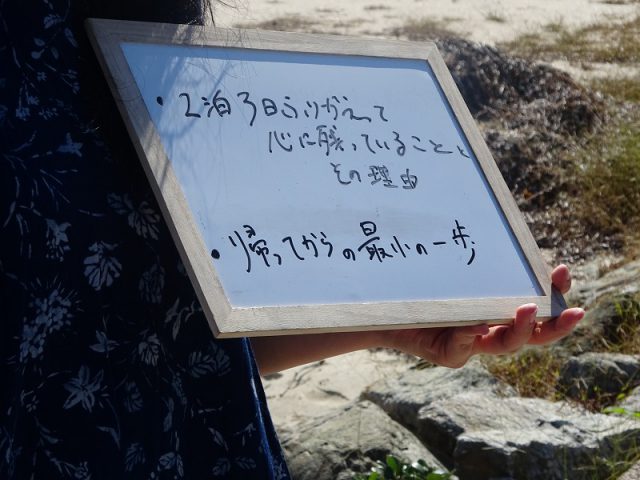 ・2泊3日ふりかえって
心に残っていることと
その理由
・帰ってからの最小の一歩